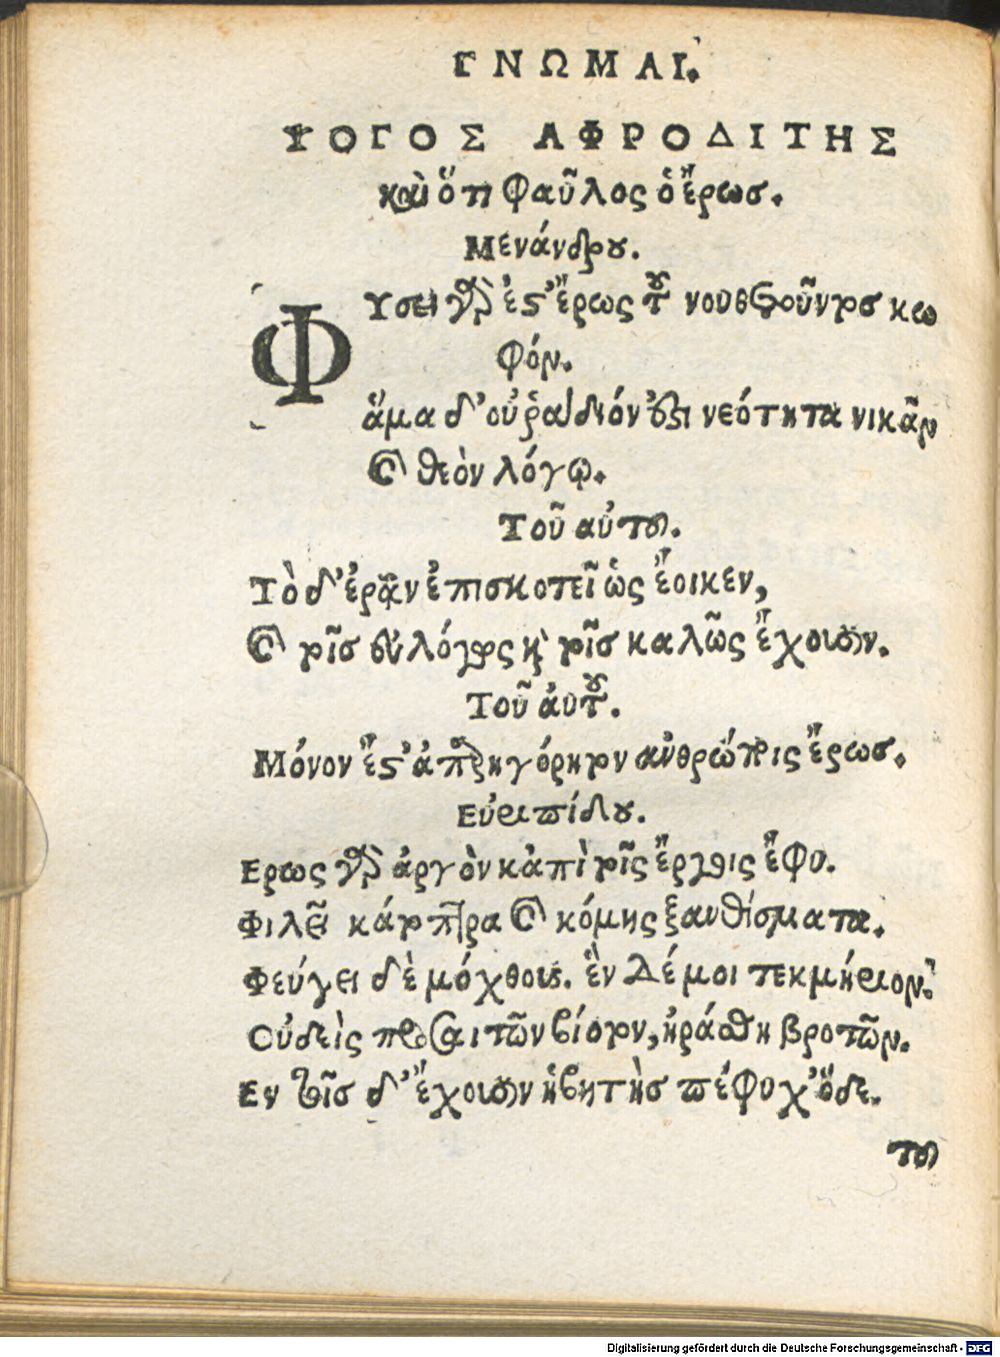 ΓΝΩΜΑΙ.
ΨΟΓΟΣ ΑΦΡΟΔΙΤΗΣ
καὶ ὅτι φαῦλος ὁ ἔρως.
Μενάνδρου.
ΦΥσει γάρ ἐστ' ἔρως τοῦ νουθετοῦντος κω
φόν.
ἅμα δ' οὐ ῥάδιόν ἐστι νεότητα νικᾶν
καὶ θεὸν λόγῳ.
Τοῦ αὐτοῦ.
Τὸ δ' ἐρᾶν ἐπισκοτεῖ ὡς ἔοικεν,
καὶ τοῖς εὐλόγως καὶ τοῖς καλῶς ἔχουσιν.
Τοῦ αὐτοῦ.
Μόνον ἔστ' ἀπαρηγόρητον ἀνθρώποις ἔρως.
Εὐριπίδου.
Ερως γὰρ ἀργὸν κἀπὶ τοῖς ἔργοις ἔφυ.
Φιλεῖ κάτοπτρα καὶ κόμης ξανθίσματα.
Φεύγει δὲ μόχθους. ἓν δέ μοι τεκμήριον.
Οὐδεὶς προσαιτῶν βίοτον, ἠράσθη βροτῶν.
Εν τοῖς δ' ἔχουσιν ἡβητὴς πέφυχ' ὅδε.
τοῦ
Digitalisierung gefördert durch die Deutsche Forschungsgemeinschaft - DFG